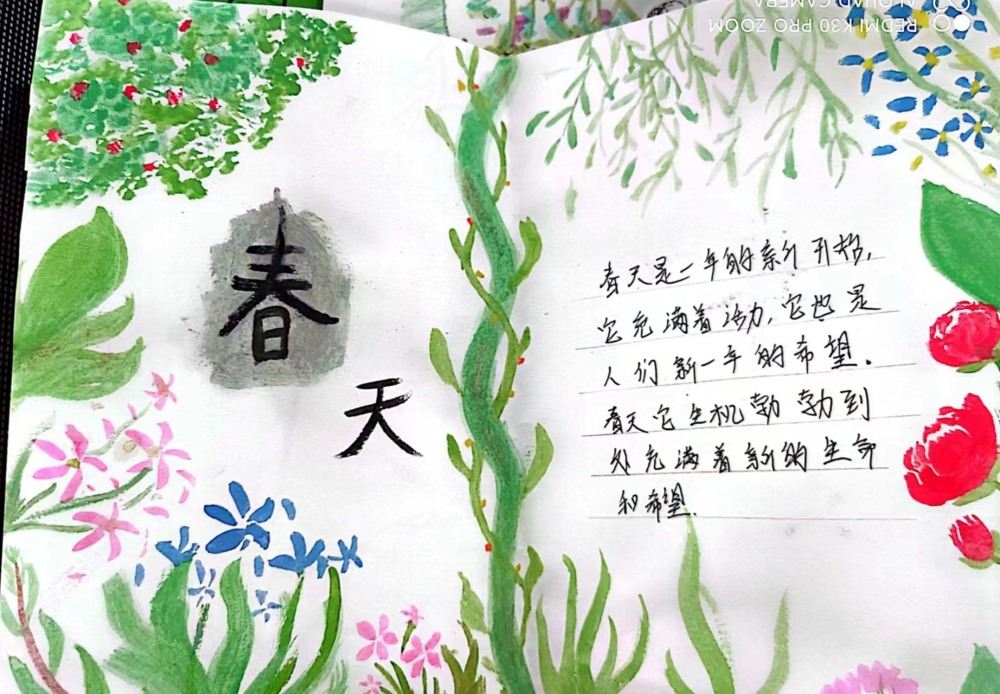 春
天
春天是一年的新开始,
它充满着活动,它也是
人们新一年的希望.
春天它生机勃勃到
处充满着新的生命
和希望.
REDMI K30 PRO ZOOM
AI QUAD CAMERA